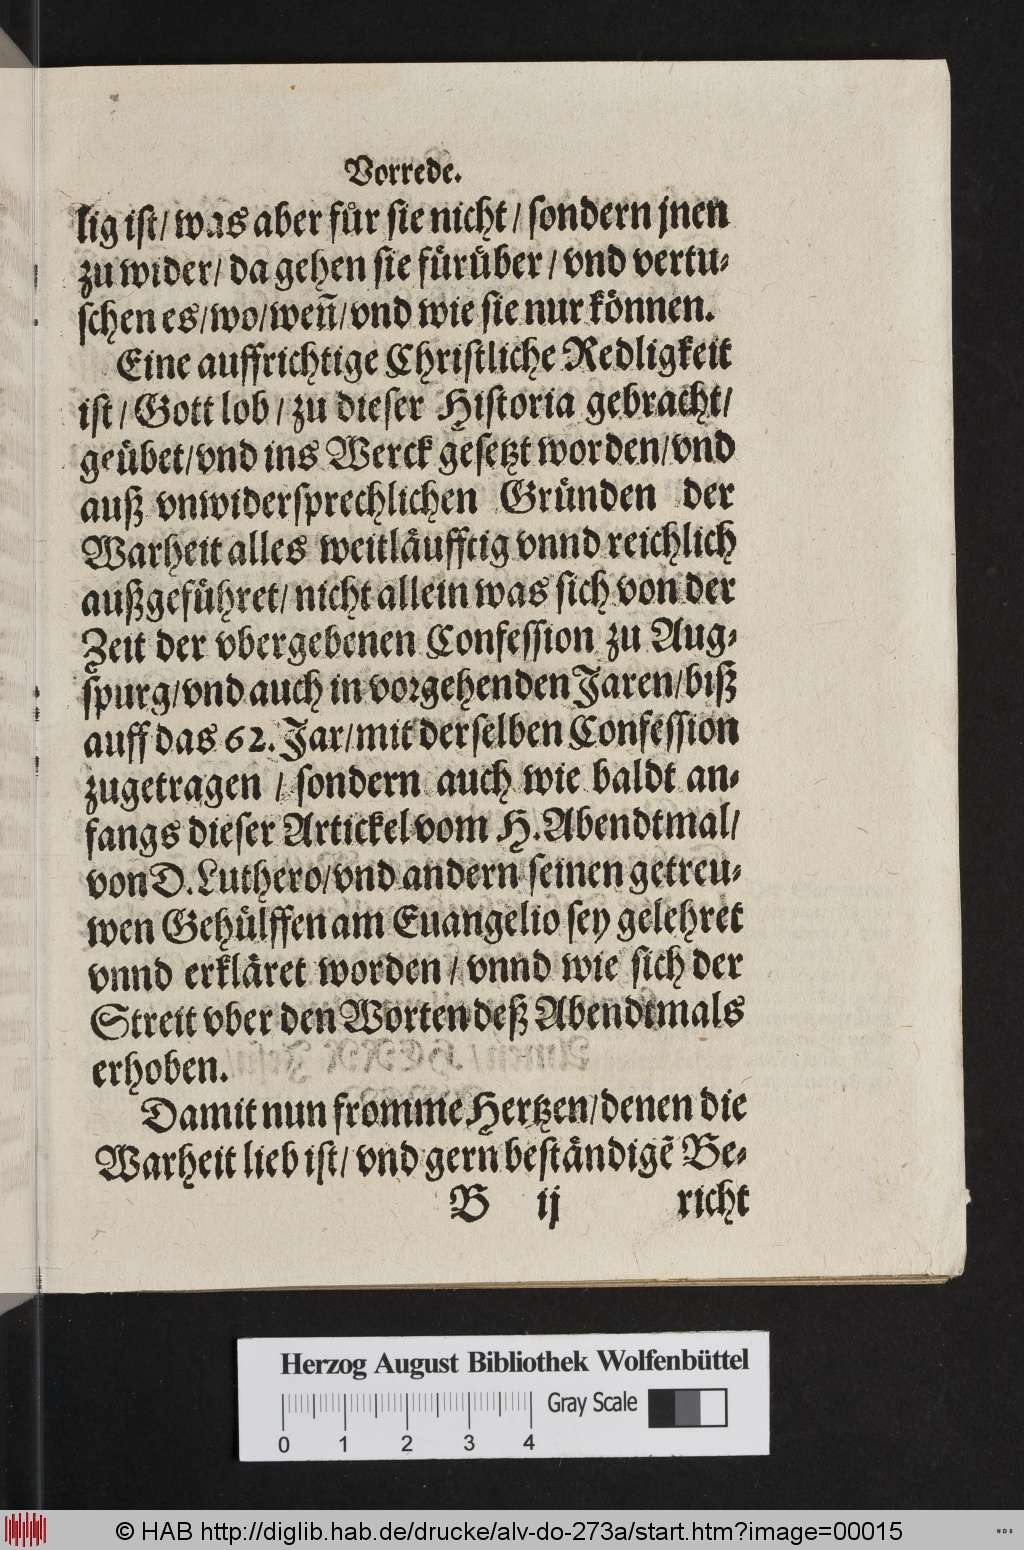 Vorrede.
lig ist/ was aber für sie nicht/ sondern jnen
zu wider/ da gehen sie fürüber/ vnd vertu-
schen es/ wo/ weñ/ vnd wie sie nur können.
Eine auffrichtige Christliche Redligkeit
ist/ Gott lob/ zu dieser Historia gebracht/
geübet/ vnd ins Werck gesetzt worden/ vnd
auß vnwidersprechlichen Gründen der
Warheit alles weitläufftig vnnd reichlich
außgeführet/ nicht allein was sich von der
Zeit der vbergebenen Confession zu Aug-
spurg/ vnd auch in vorgehenden Jaren/ biß
auff das 62. Jar/ mit derselben Confession
zugetragen/ sondern auch wie baldt an-
fangs dieser Artickel vom H. Abendtmal/
von D. Luthero/ vnd andern seinen getreu-
wen Gehülffen am Euangelio sey gelehret
vnnd erkläret worden/ vnnd wie sich der
Streit vber den Worten deß Abendtmals
erhoben.
Damit nun fromme Hertzen/ denen die
Warheit lieb ist/ vnd gern beständigẽ Be-
B ij richt
Herzog August Bibliothek Wolfenbüttel
Gray Scale
0 1 2 3 4
© HAB http://diglib.hab.de/drucke/alv-do-273a/start.htm?image=00015